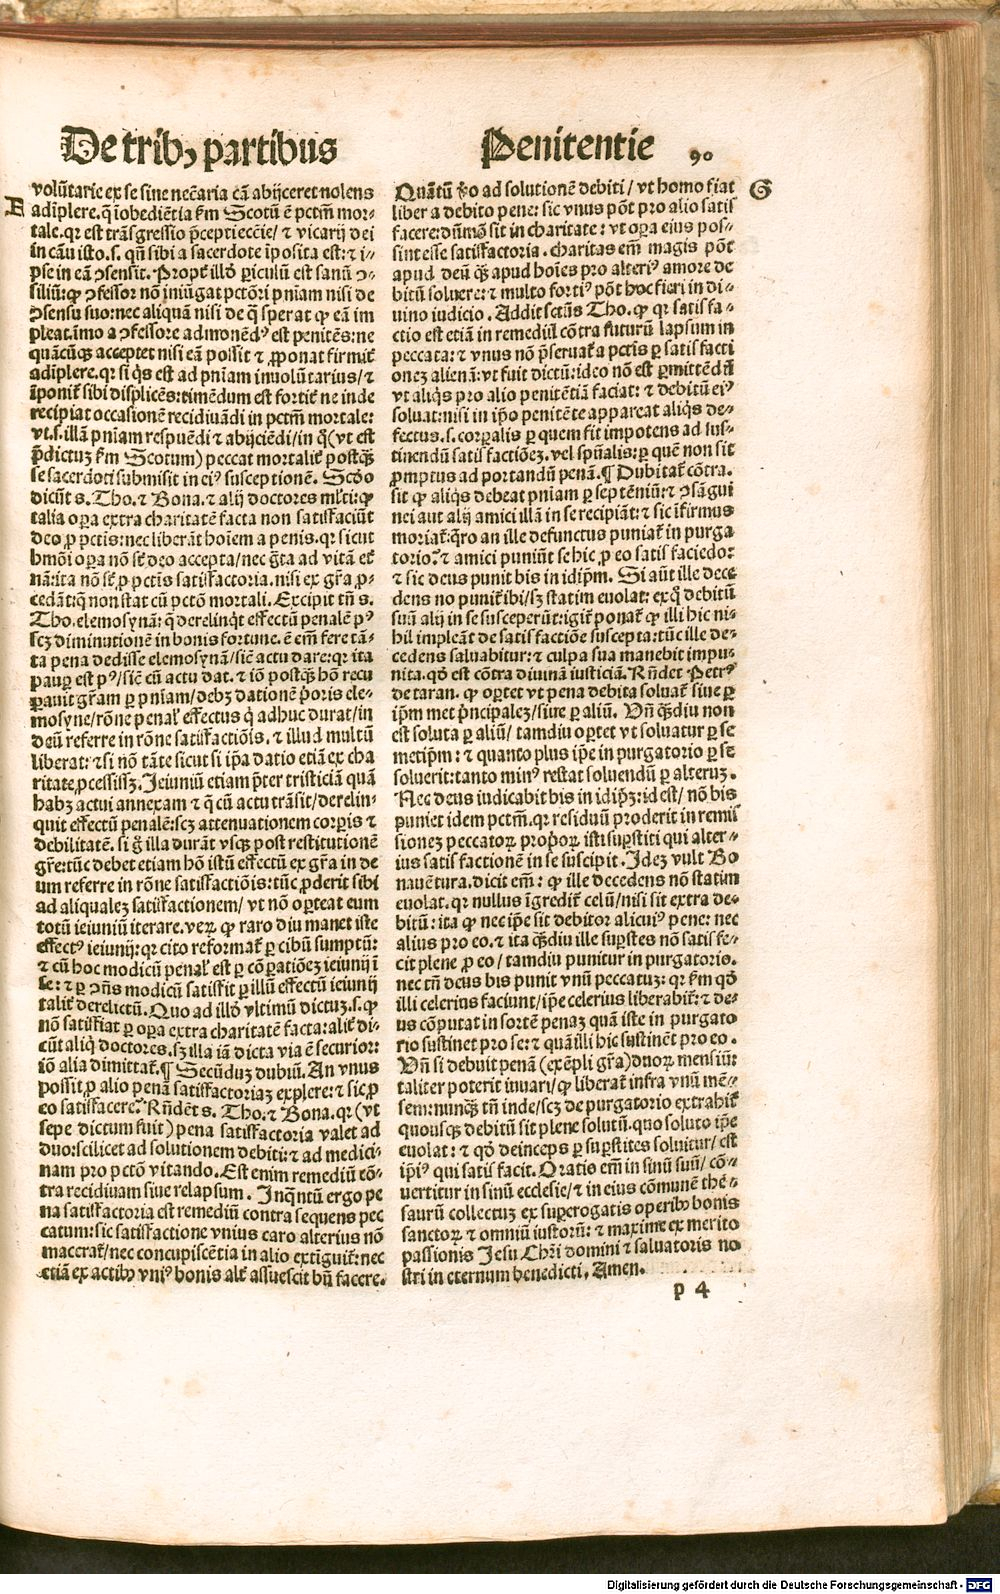 De tribꝰ partibus
Penitentie
90
E
volũtarie ex se sine necͣria cã abijceret nolens
adĩplere. q̃ ĩobediẽtia ẽm Scotũ ẽ pctm̃ mor-
tale. qr est trãsgressio p̃ceptiecc̃ie/ ⁊ vicarij dei
in cãu isto. s. qñ sibi a sacerdote ĩposita est: ⁊ i-
pse in eã ꝯsensit. Propt̃ illđ piculũ est sanũ ꝯ-
siliũ: ꝙ ꝯfessor nõ iniũgat pctõri pñiam nisi de
ꝯsensu suo: nec aliquã nisi de q̃ sperat ꝙ eã im
pleat. ĩmo a ꝯfessore admonẽdꝰ est penitẽs: ne
quãcũqꝫ acceptet nisi eã possit ⁊ ꝓponat firmit̃
adĩplere. qr si q̃s est ad pñiam inuolũtarius/ ⁊
ĩponit̃ sibi displicẽs: timẽdum est fortit̃ ne inde
recipiat occasionẽ recidiuãdi in pctm̃ mortale:
vt. s. illã pñiam respuẽdi ⁊ abijciẽdi/ in q̃ (vt est
p̃dictuꝫ ẽm Scotum) peccat mortalit̃ postqꝫ̃
se sacerdoti submisit in eiꝰ susceptionẽ. Scđo
dicũt s. Tho. ⁊ Bona. ⁊ alij doctores ml̃ti: ꝙ
talia oꝑa extra charitatẽ facta non satisfaciũt
deo ꝓ pctis: nec liberãt hoĩem a penis. qr sicut
hmõi oꝑa nõ st̃ deo accepta/ nec g̃ta ad vitã et̃
nã: ita nõ st̃ ꝓ pctis satisfactoria. nisi ex gr̃a ꝓ-
cedãt: q̃ non stat cũ pctõ mortali. Excipit tñ s.
Tho. elemosynã: q̃ derelinq̃t effectũ penalẽ pꝰ
scꝫ diminutionẽ in bonis fortune. ẽ em̃ fere tã-
ta pena dedisse elemosynã/ siẽ actu dare: qr ita
paupꝛ est pꝰ/ siẽ cũ actu dat. ⁊ iõ postqꝫ̃ hõ recu
ꝑauit gr̃am ꝑ pñiam/ debꝫ dationẽ p̃oris ele-
mosyne/ rõne penal̃ effectus q̃ adhuc durat/ in
deũ referre in rõne satisfactiõis. ⁊ illud multũ
liberat: ⁊ si nõ tãte sicut si ip̃a datio etiã ex cha
ritate ꝓcessissꝫ. Ieiuniũ etiam p̃ter tristiciã quã
habꝫ actui annexam ⁊ q̃ cũ actu trãsit/ derelin-
quit effectũ penalẽ: scꝫ attenuationem corpis ⁊
debilitatẽ. si g̃ illa durãt vsqꝫ post restitutionẽ
gr̃e: tũc debet etiam hõ istũ effectũ ex gr̃a in de
um referre in rõne satisfactiõis: tũc ꝓderit sibi
ad aliqualeꝫ satisfactionem/ vt nõ oꝑteat eum
totũ ieiuniũ iterare. veꝝ ꝙ raro diu manet iste
effectꝰ ieiunij: qr cito reformat̃ ꝑ cibũ sumptũ:
⁊ cũ hoc modicũ penal̃ est ꝑ cõꝑatiõeꝫ ieiunij ĩ
se: ⁊ ꝑ ꝯñs modicũ satisfit ꝑ illũ effectũ ieiunij
talit̃ derelictũ. Quo ad illđ vltimũ dictuꝫ. s. ꝙ
nõ satisfiat ꝑ oꝑa extra charitatẽ facta: alit̃ di-
cũt aliq̃ doctores. sꝫ illa iã dicta via ẽ securior:
iõ alia dimittat̃. ¶ Secũduꝫ dubiũ. An vnus
possit ꝓ alio penã satisfactoriaꝫ explere: ⁊ sic ꝓ
eo satisfacere? Rñdẽt s. Tho. ⁊ Bona. qr (vt
sepe dictum fuit) pena satisfactoria valet ad
duo: scilicet ad solutionem debiti: ⁊ ad medici-
nam pro pctõ vitando. Est enim remediũ cõ-
tra recidiuam siue relapsum. Inq̃ntũ ergo pe
na satisfactoria est remediũ contra sequens pec
catum: sic satisfactione vnius caro alterius nõ
macerat̃/ nec concupiscẽtia in alio extĩguit̃: nec
etiã ex actibꝰ vniꝰ bonis alt̃ assuescit bñ facere.
G
Quãtũ ṽo ad solutionẽ debiti/ vt homo fiat
liber a debito pene: sic vnus põt pro alio satis
facere: dũmõ sit in charitate: vt oꝑa ejus pos-
sint esse satisfactoria. Charitas em̃ magis põt
apud deũ qꝫ̃ apud hoĩes pro alteriꝰ amore de
bitũ soluere: ⁊ multo fortiꝰ põt hoc fieri in di-
uino iudicio. Addit sctũs Tho. ꝙ qr satisfa-
ctio est etiã in remediũ cõtra futurũ lapsum in
peccata: ⁊ vnus nõ p̃seruat̃ a pctis ꝑ satisfacti
oneꝫ alienã: vt fuit dictũ: ideo nõ est ꝑmittẽdũ
vt aliq̃s pro alio penitẽtiã faciat: ⁊ debitũ eiꝰ
soluat: nisi in ip̃o penitẽte appareat aliq̃s de-
fectus. s. corꝑalis ꝑ quem fit impotens ad sus-
tinendũ satisfactiõeꝫ. vel sp̃ualis: ꝑ quẽ non sit
ꝓmptus ad portandũ penã. ¶ Dubitat̃ cõtra.
sit ꝙ aliq̃s debeat pñiam ꝑ septẽniũ: ⁊ ꝯsãgui
nei aut alij amici illã in se recipiãt: ⁊ sic ĩfirmus
moriat̃: q̃ro an ille defunctus puniat̃ in purga
torio? ⁊ amici puniũt se hic ꝓ eo satisfaciẽdo:
⁊ sic deus punit bis in idip̃m. Si aũt ille dece
dens no punit̃ ibi/ sꝫ statim euolat: ex q̃ debitũ
suũ alij in se susceperũt: igit̃ ponat̃ ꝙ illi hic ni-
hil impleãt de satisfactiõe suscepta: tũc ille de-
cedens saluabitur: ⁊ culpa sua manebit impu-
nita. qđ est cõtra diuinã iusticiã. Rñdet Petrꝰ
de taran. ꝙ oꝑtet vt pena debita soluat̃ siue ꝑ
ip̃m met p̃ncipaleꝫ/ siue ꝑ aliũ. Vñ qꝫ̃diu non
est soluta ꝑ aliũ/ tamdiu oꝑtet vt soluatur ꝑ se
metip̃m: ⁊ quanto plus ip̃e in purgatorio ꝑ se
soluerit: tanto minꝰ restat soluendũ ꝑ alteruꝫ.
Nec deus iudicabit bis in idip̃ꝫ: id est/ nõ bis
puniet idem pctm̃. qr residuũ proderit in remis
sioneꝫ peccatoꝝ prop̃oꝝ isti suꝑstiti qui alter-
ius satisfactionẽ in se suscipit. Ideꝫ vult Bo
nauẽtura. dicit em̃: ꝙ ille decedens nõ statim
euolat. qr nullus ĩgredit̃ celũ/ nisi sit extra de-
bitũ: ita ꝙ nec ip̃e sit debitor alicuiꝰ pene: nec
alius pro eo. ⁊ ita qꝫ̃diu ille suꝑstes nõ satisfe-
cit plene ꝓ eo/ tamdiu punitur in purgatoris.
nec tñ deus bis punit vnũ peccatuꝫ: qr ẽm qđ
illi celerius faciunt/ ip̃e celerius liberabit̃: ⁊ de-
us cõputat in sortẽ penaꝫ quã iste in purgato
rio sustinet pro se: ⁊ quã illi hic sustinẽt pro eo.
Vñ si debuit penã (exẽpli gr̃a) duoꝝ mensiũ:
taliter poterit iuuari/ ꝙ liberat̃ infra vnũ mẽ-
sem: nunqꝫ̃ tñ inde/ scꝫ de purgatorio extrahit̃
quousqꝫ debitũ sit plene solutũ. quo soluto ip̃e
euolat: ⁊ qđ deinceps ꝑ suꝑstites soluitur/ est
ip̃iꝰ qui satisfacit. Oratis em̃ in sinũ suũ/ cõ-
vertitur in sinũ ecclesie/ ⁊ in eius cõmunẽ thẽ-
saurũ collectuꝫ ex suꝑcrogatis operibꝰ bonis
sanctoꝝ ⁊ omniũ iustorũ: ⁊ maxime ex merito
passionis Jesu Chr̃i domini ⁊ saluatoris no
stri in eternum benedicti. Amen.
p 4
Digitalisierung gefördert durch die Deutsche Forschungsgemeinschaft - DFG